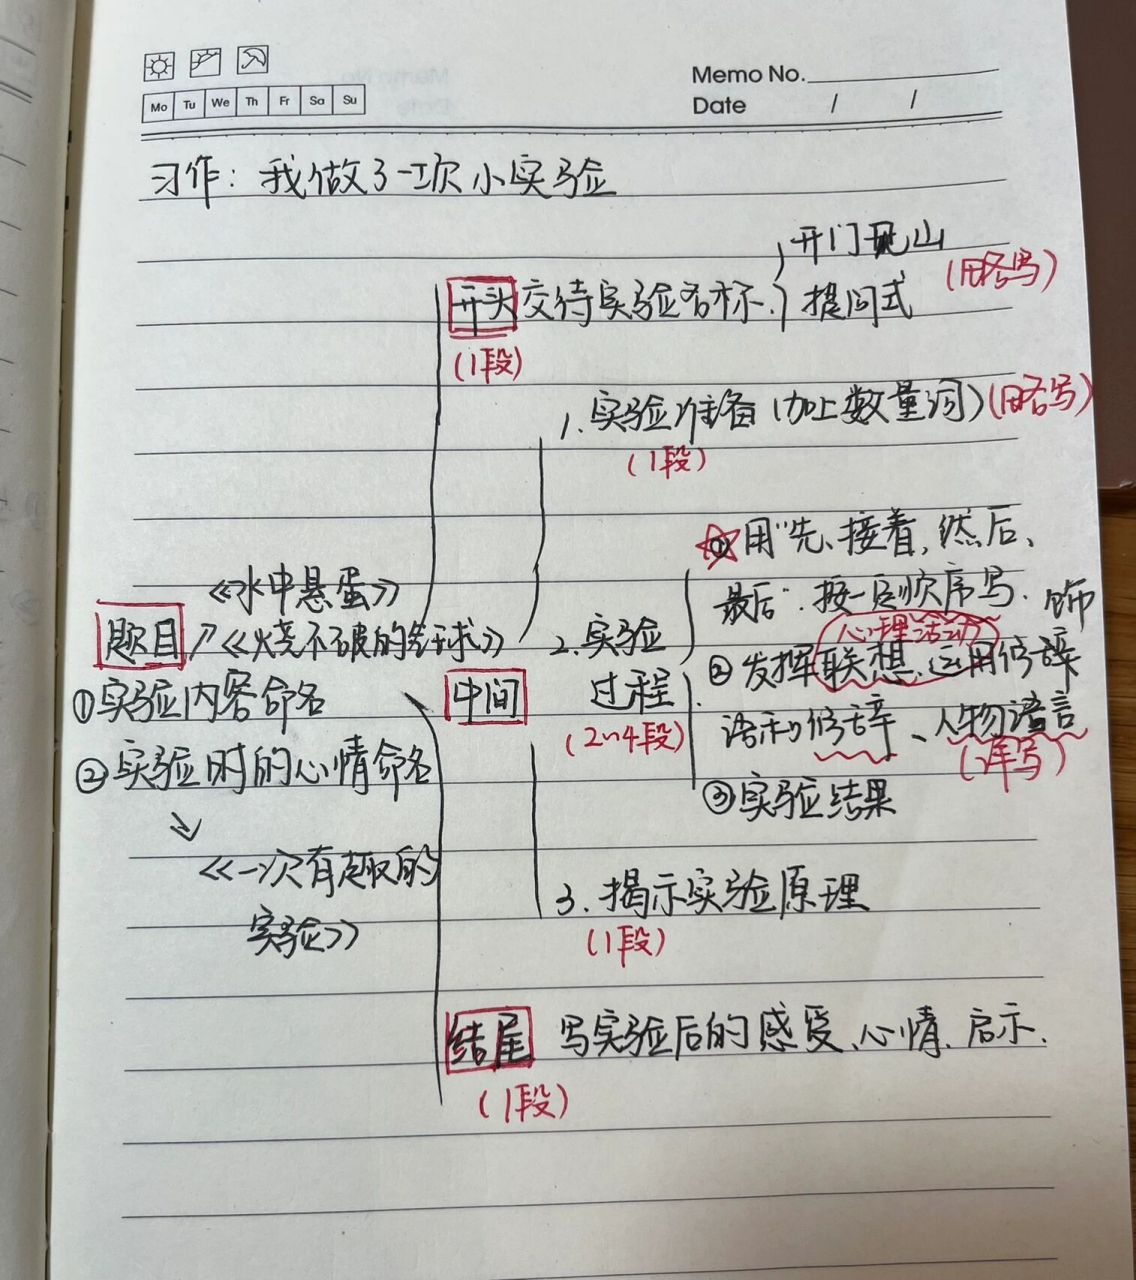 Memo No.
Mo Tu We Th Fr Sa Su
Date / /
习作：我做了一次小实验
开门见山
(略写)
开头 交待实验名称. 提问式
(1段)
1. 实验准备 (加上数量词) (略写)
(1段)
① 用“先、接着，然后、
最后”. 按一定顺序写.
《水中悬蛋》
题目 《烧不破的气球》
①实验内容命名
②实验时的心情命名
《一次有趣的
实验》
中间
2. 实验
过程
(2~4段)
心理活动
② 发挥联想. 运用修辞
饰
语和修辞、人物语言
(详写)
③实验结果
3. 揭示实验原理
(1段)
结尾 写实验后的感受、心情、启示.
(1段)